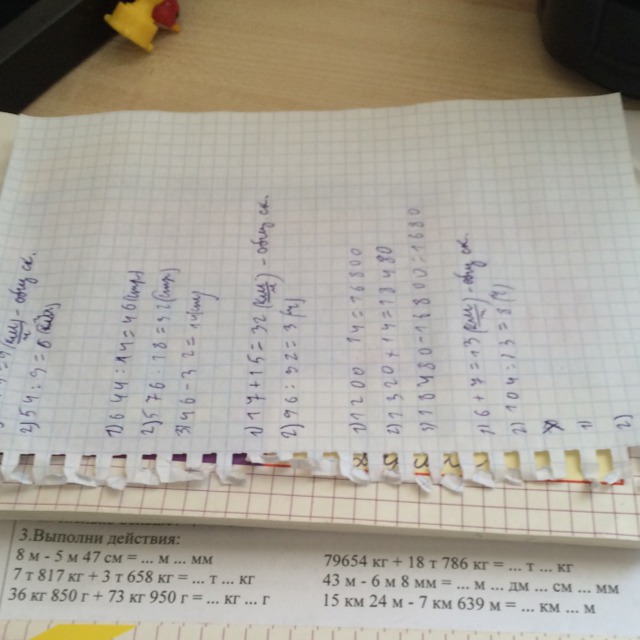 - общ ск.
2) 54 : 9 = 6
1) 644 : 14 = 46 (км/ч)
2) 576 : 18 = 32 (км/ч)
3) 46 - 32 = 14 (км)
1) 17 + 15 = 32 (км/ч) - общ ск.
2) 96 : 32 = 3 (ч)
1) 1200 · 14 = 16800
2) 1320 · 14 = 18480
3) 18480 - 16800 = 1680
1) 6 + 7 = 13 (км/ч) - общ ск.
2) 104 : 13 = 8 (ч)
1)
2)
3.Выполни действия:
8 м - 5 м 47 см = ... м ... мм
7 т 817 кг + 3 т 658 кг = ... т ... кг
36 кг 850 г + 73 кг 950 г = ... кг ... г
79654 кг + 18 т 786 кг = ... т ... кг
43 м - 6 м 8 мм = ... м ... дм ... см ... мм
15 км 24 м - 7 км 639 м = ... км ... м